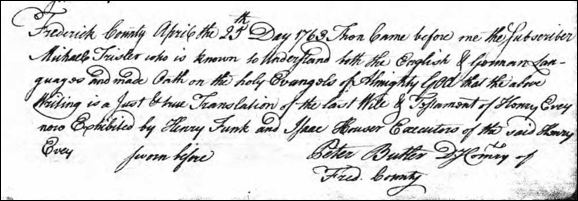 Frederick County April the 25th Day 1763 Then Came before me the Subscriber
Michael Trisler who is known to Understand both the English & German Lan-
guages and made Oath on the holy Evangels of Almighty God that the above
Writing is a Just & true Translation of the last Will & Testament of Henry Evey
now Exhibited by Henry Funk and Isaac Houser Executors of the said Henry
Evey sworn before Peter Butler Dy Comry of
Fred. County